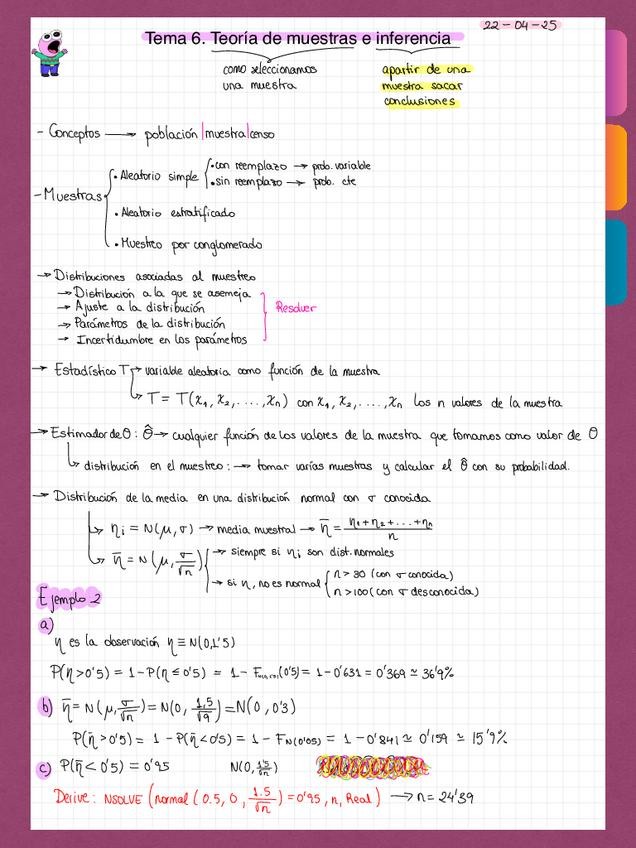 22-04-25
Tema 6. Teoría de muestras e inferencia
como seleccionamos
una muestra
apartir de una
muestra sacar
conclusiones
- Conceptos → población | muestra | censo
- Muestras
• Aleatorio simple
• con reemplazo → prob. variable
• sin reemplazo → prob. cte
• Aleatorio estratificado
• Muestreo por conglomerado
→ Distribuciones asociadas al muestreo
→ Distribución a la que se asemeja
→ Ajuste a la distribución
→ Parámetros de la distribución
→ Incertidumbre en los parámetros
Resolver
→ Estadístico T → variable aleatoria como función de la muestra
↳ T = T(x₁, x₂, ..., xₙ) con x₁, x₂, ..., xₙ los n valores de la muestra
→ Estimador de θ: θ̂ → cualquier función de los valores de la muestra que tomamos como valor de θ
↳ distribución en el muestreo: → tomar varias muestras y calcular el θ̂ con su probabilidad.
→ Distribución de la media en una distribución normal con σ conocida
↳ η i = N(μ, σ) → media muestral → η̄ = η₁+η₂+...+ηₙ / n
↳ η̄ = N(μ, σ/√n)
→ siempre si η i son dist. normales
→ si η, no es normal
n > 30 (con σ conocida)
n > 100 (con σ desconocida)
Ejemplo 2
a)
η es la observación η ≡ N(0,1'5)
P(η > 0'5) = 1 - P(η ≤ 0'5) = 1 - F (0'5) = 1 - 0'631 = 0'369 ≃ 36'9%
b) η̄ = N(μ, σ/√n) = N(0, 1,5/√9) = N(0, 0'3)
P(η̄ > 0'5) = 1 - P(η̄ < 0'5) = 1 - F N(0'05) = 1 - 0'841 ≃ 0'159 ≃ 15'9%
c) P(η̄ < 0'5) = 0'95 N(0, 1,5/√n)
Derive: NSOLVE (normal (0.5, 0, 1.5/√n) = 0'95, n, Real) → n = 24'39